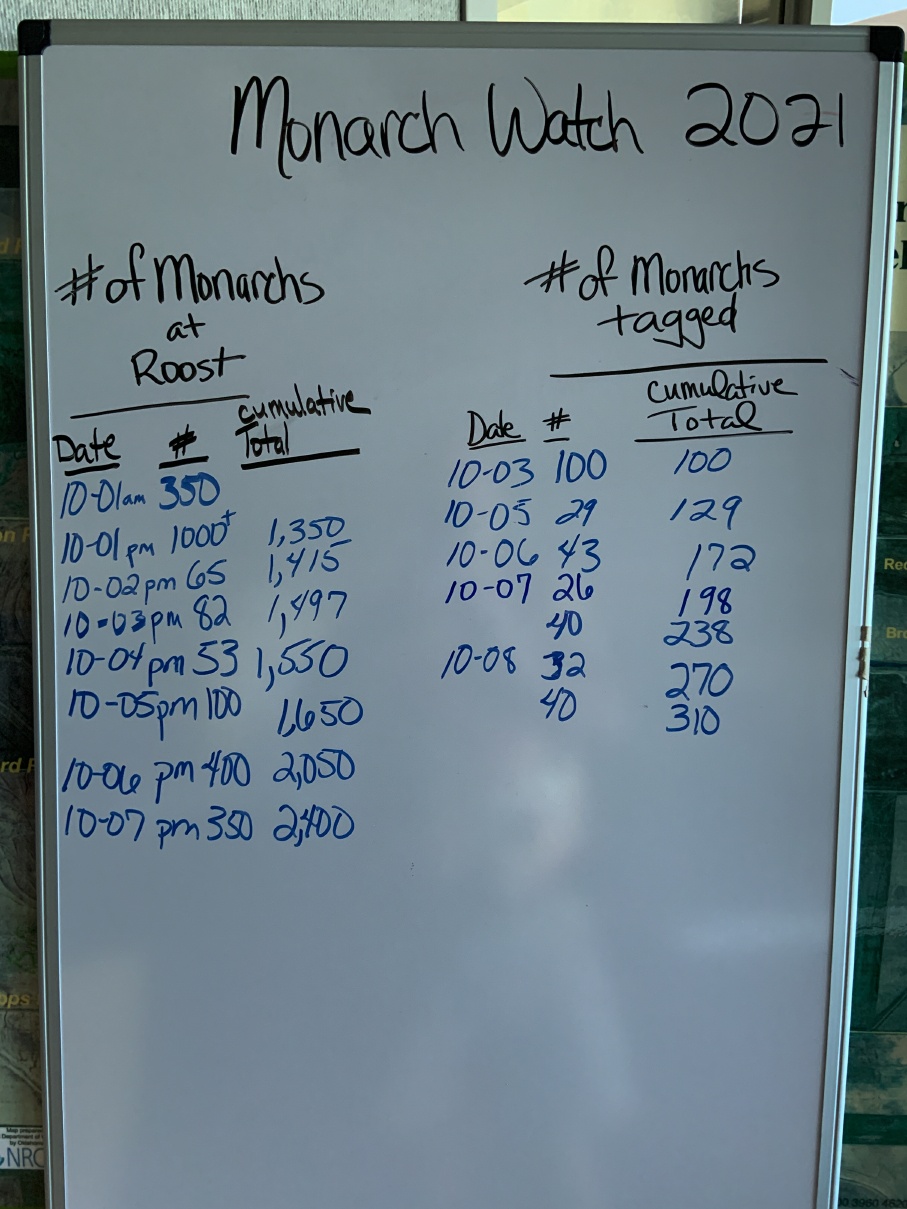 Monarch Watch 2021
# of Monarchs
at
Roost
Date # Cumulative Total
10-01am 350
10-01 pm 1000+ 1,350
10-02 pm 65 1,415
10-03 pm 82 1,497
10-04 pm 53 1,550
10-05 pm 100 1,650
10-06 pm 400 2,050
10-07 pm 350 2,400
# of Monarchs
tagged
Date # Cumulative Total
10-03 100 100
10-05 29 129
10-06 43 172
10-07 26 198
40 238
10-08 32 270
40 310
NRC